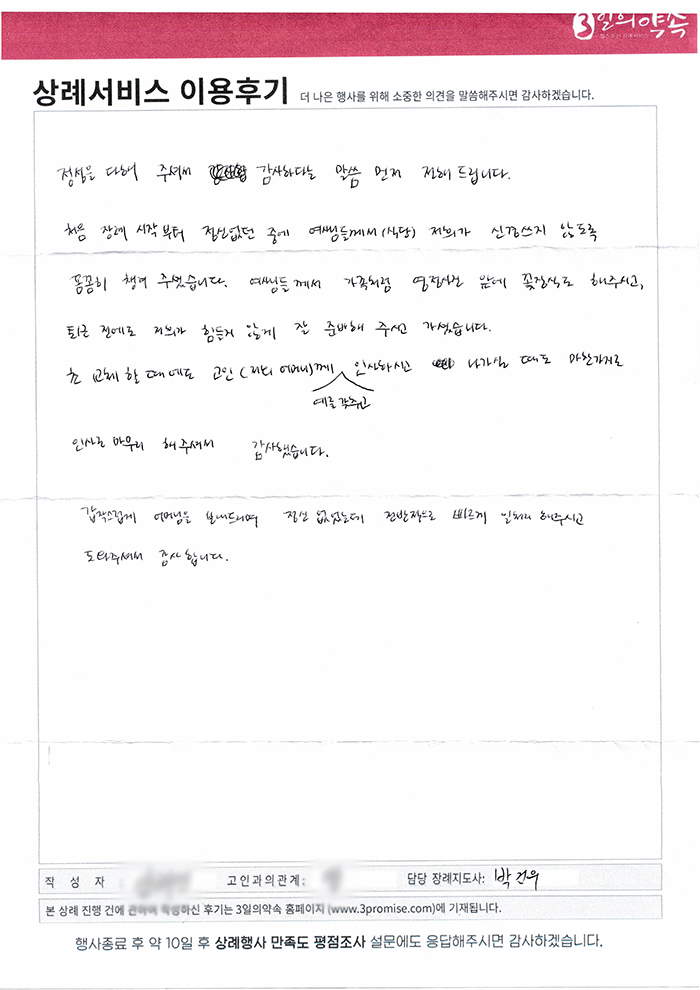 3일의약속
상례서비스 이용후기 더 나은 행사를 위해 소중한 의견을 말씀해주시면 감사하겠습니다.
정성을 다해 주셔서 감사하다는 말씀 먼저 전해 드립니다.
처음 장례 시작부터 정신없던 중에 여쌤들께서(식당) 저희가 신경쓰지 않도록
꼼꼼히 챙겨 주셨습니다. 여쌤들께서 가족처럼 영정사진 앞에 꽃장식도 해주시고,
퇴근 전에도 저희가 힘든지 않게 잘 준비해 주시고 가셨습니다.
초 교체 할 때에도 고인(저희 어머니)께 인사하시고 나가실 때도 마찬가지로
예를 갖추고
인사로 마무리 해주셔서 감사했습니다.
갑작스럽게 어머님을 보내드리며 정신 없었는데 전반적으로 빠르게 일처리 해주시고
도와주셔서 감사합니다.
작 성 자 : 고인과의관계: 담당 장례지도사: 박건우
본 상례 진행 건에 관하여 작성하신 후기는 3일의약속 홈페이지 (www.3promise.com)에 기재됩니다.
행사종료 후 약 10일 후 상례행사 만족도 평점조사 설문에도 응답해주시면 감사하겠습니다.